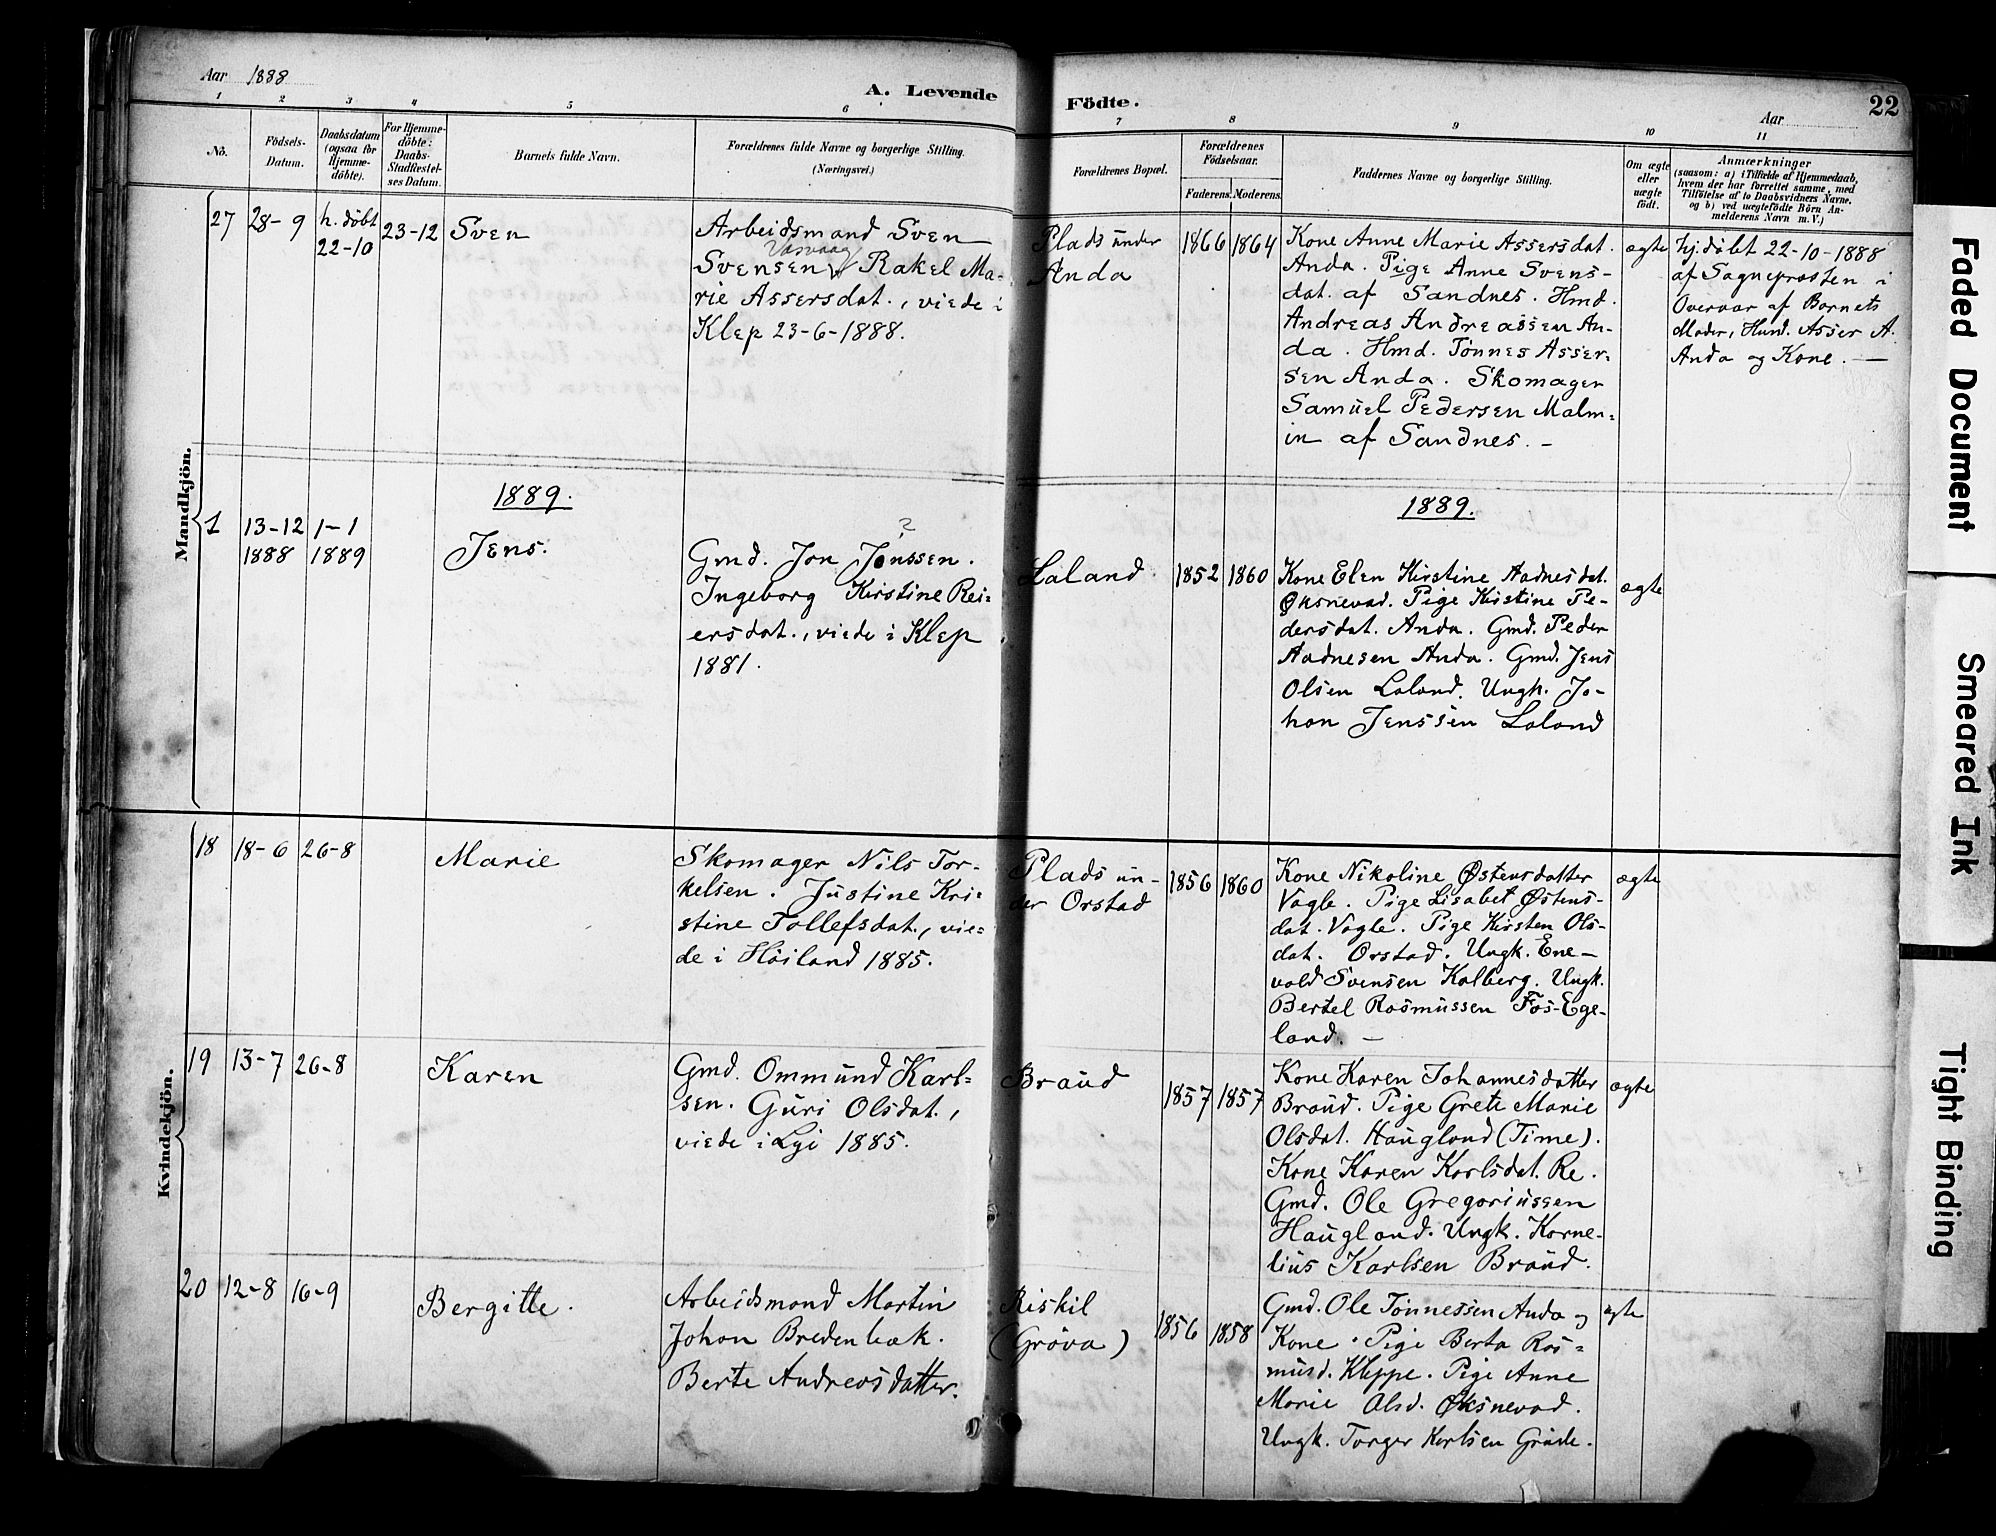 Aar 1888
A. Levende
Födte.
Aar
22
1 2 3 4 5 6 7 8 9 10 11
No.
Födsels-
Datum.
Daabsdatum
(ogsaa for
Hjemme-
döbte).
For Hjemme-
döbte:
Daabs-
Stadfæstel-
ses Datum.
Barnets fulde Navn.
Forældrenes fulde Navne og borgerlige Stilling.
(Næringsvei.)
Forældrenes Bopæl.
Forældrenes
Födselsaar.
Faderens. Moderens.
Faddernes Navne og borgerlige Stilling.
Om ægte
eller
uægte
födt.
Anmærkninger
(saasom: a) i Tilfælde af Hjemmedaab,
hvem der har forrettet samme, med
Tilföielse af to Daabsvidners Navne,
og b) ved uægtefödte Börn An-
melderens Navn m. V.)
Mandkjön.
27
28-9
h. döbt
22-10
23-12
Sven
Arbeidsmand Sven
Svensen Rakel Ma-
rie Assersdat., viede i
Klep 23-6-1888.
Plads under
Anda
1866
1864
Kone Anne Marie Assersdat.
Anda. Pige Anne Svens-
dat. af Sandnes. Hmd.
Andreas Andreassen An-
da. Hmd. Tönnes Asser-
sen Anda. Skomager
Samuel Pedersen Malm-
in af Sandnes. -
ægte
hj. döbt 22-10-1888
af Sognepræsten i
Overvær af Barnets
Moder, Husm. Asser A.
Anda og Kone. -
1889.
1889.
1
13-12
1888
1-1
1889
Jens.
?
Gmd. Jon Jonssen.
Ingeborg Kirstine Rei-
ersdat., viede i Klep
1881.
Laland
1852
1860
Kone Elen Kirstine Aadnesdat.
Øksnevad. Pige Kirstine Pe-
dersdat. Anda. Gmd. Peder
Aadnesen Anda. Gmd. Jens
Olsen Laland. Ungk. Jo-
han Jenssen Laland
ægte
Kvindekjön.
18
18-6
26-8
Marie
Skomager Nils Tor-
kelsen. Justine Kri-
stine Tollefsdat., vie-
de i Höiland 1885.
Plads un-
der Orstad
1856
1860
Kone Nikoline Østensdatter
Vagle. Pige Lisabet Østens-
dat. Vagle. Pige Kirsten Ols-
dat. Orstad. Ungk. Ene-
vold Svensen Kalberg. Ungk.
Bertel Rasmussen Fos-Ege-
land. -
ægte
19
13-7
26-8
Karen
Gmd. Ommund Karl-
sen. Guri Olsdat.,
viede i Lyi 1885.
Braud
1857
1857
Kone Karen Johannesdatter
Braud. Pige Grete Marie
Olsdat. Haugland (Time).
Kone Karen Karlsdat. Re.
Gmd. Ole Gregoriussen
Haugland. Ungk. Korne-
lius Karlsen Braud.
ægte
20
12-8
16-9
Bergitte.
Arbeidsmand Martin
Johan Bredenbak.
Berte Andreasdatter.
Riskil
(Gröva)
1856
1858
Gmd. Ole Tönnessen Anda og
Kone. Pige Berta Ras-
musd. Kleppe. Pige Anne
Marie Olsd. Øksnevad.
Ungk. Torger Karlsen Grude.
ægte
Faded Document
Smeared Ink
Tight Binding